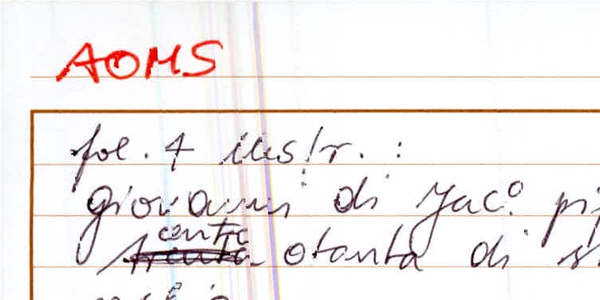 AOMS
fol. 4 illustr. :
giovanni di Jac.o pi
cento
trenta otanta di s